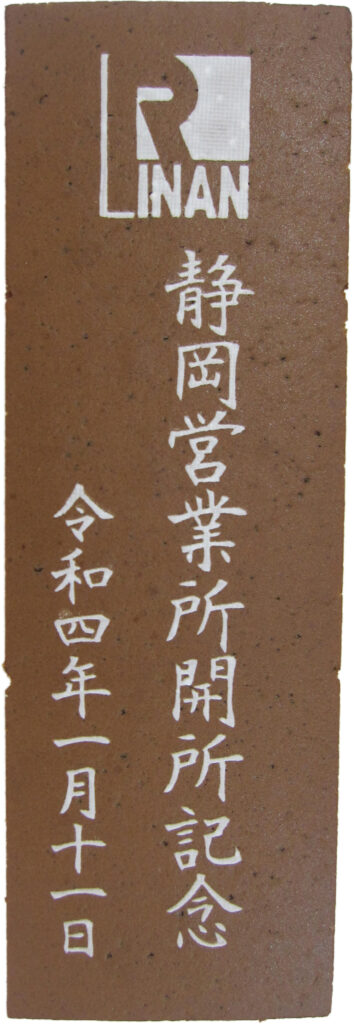 RINAN
静岡営業所開所記念
令和四年一月十一日